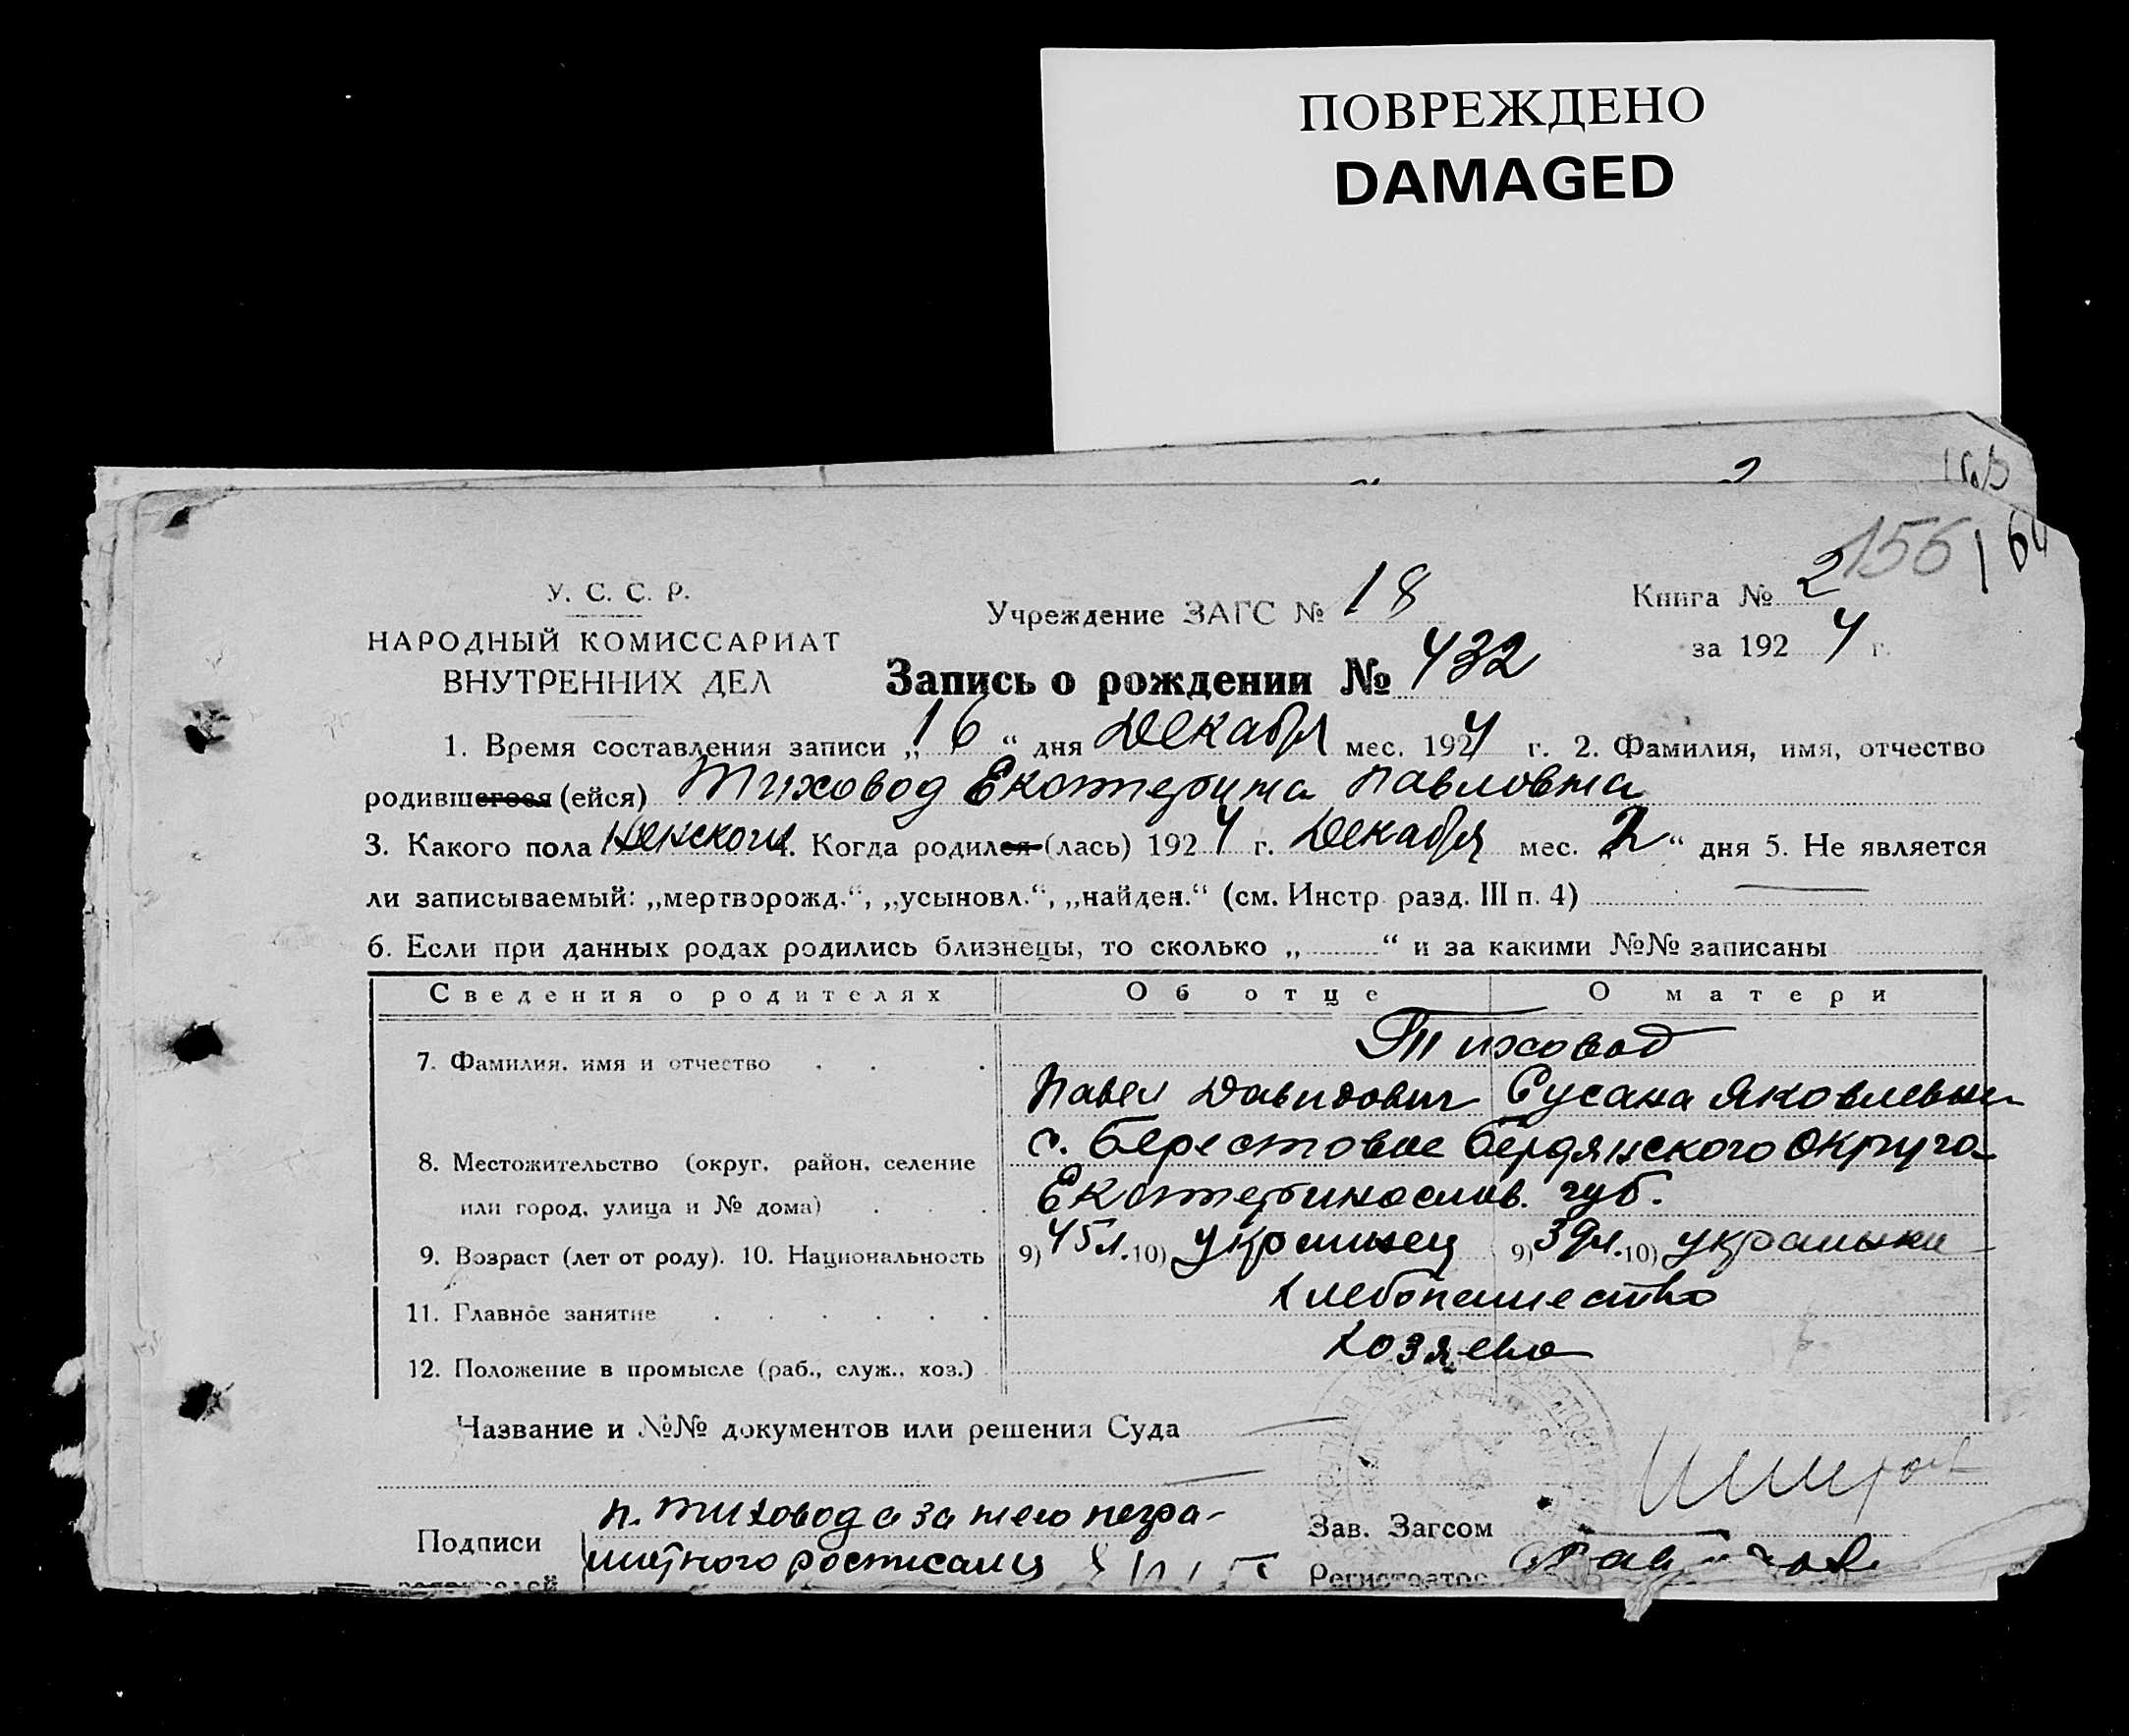 ПОВРЕЖДЕНО
DAMAGED
2 156
У. С. С. Р.
НАРОДНЫЙ КОМИССАРИАТ
ВНУТРЕННИХ ДЕЛ
Учреждение ЗАГС № 18
Книга № 2
за 1924 г.
Запись о рождении № 432
1. Время составления записи „16“ дня Декабря мес. 1924 г. 2. Фамилия, имя, отчество
родившегося (ейся) Тиховод Екатерина Павловна
3. Какого пола Женского 4. Когда родился (лась) 1924 г. Декабря мес. „2“ дня 5. Не является
ли записываемый: „мертворожд.“, „усыновл.“, „найден.“ (см. Инстр. разд. III п. 4)
6. Если при данных родах родились близнецы, то сколько „ “ и за какими №№ записаны
Сведения о родителях Об отце О матери
7. Фамилия, имя и отчество Тиховод
Павел Давидович Сусана Яковлевна
8. Местожительство (округ, район, селение с. Берестовое Бердянского Округа
или город, улица и № дома) Екатеринослав. губ.
9. Возраст (лет от роду). 10. Национальность 9) 45 л. 10) украинец 9) 39 л. 10) украинка
11. Главное занятие Хлебопашество
12. Положение в промысле (раб., служ., хоз.) Хозяева
Название и №№ документов или решения Суда
Подписи П. Тиховод а за него негра-
мотного росписался
Зав. Загсом
Регистратор